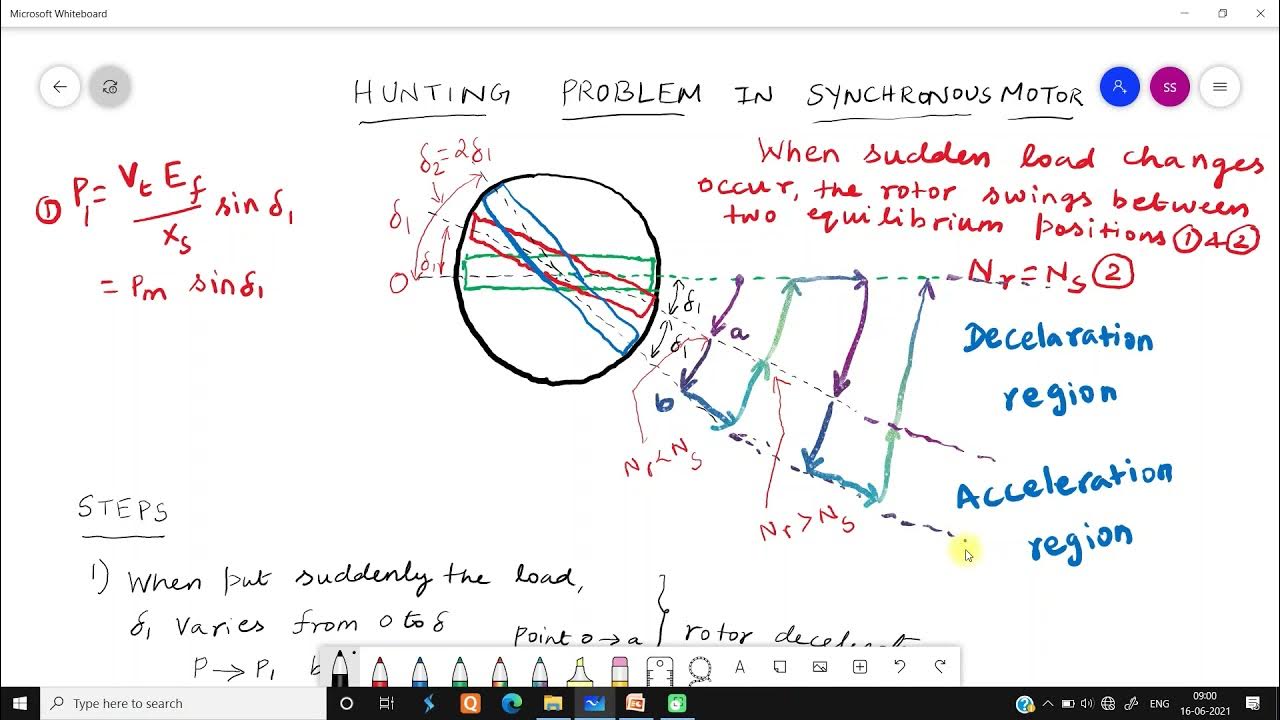 Microsoft Whiteboard
HUNTING PROBLEM IN SYNCHRONOUS MOTOR
SS
① P₁ = Vt Ef / Xs sin δ₁
= Pm sin δ₁
δ₂ = 2δ₁
δ₁
δ₁
O
When sudden load changes
occur, the rotor swings between
two equilibrium positions ① & ②
Nr = Ns ②
δ₁
δ₁
a
b
Nr < Ns
Nr > Ns
Decelaration
region
Acceleration
region
STEPS
1) When put suddenly the load,
δ₁ varies from 0 to δ
P → P₁
point o → a } rotor decelerat
A
Type here to search
ENG
09:00
16-06-2021